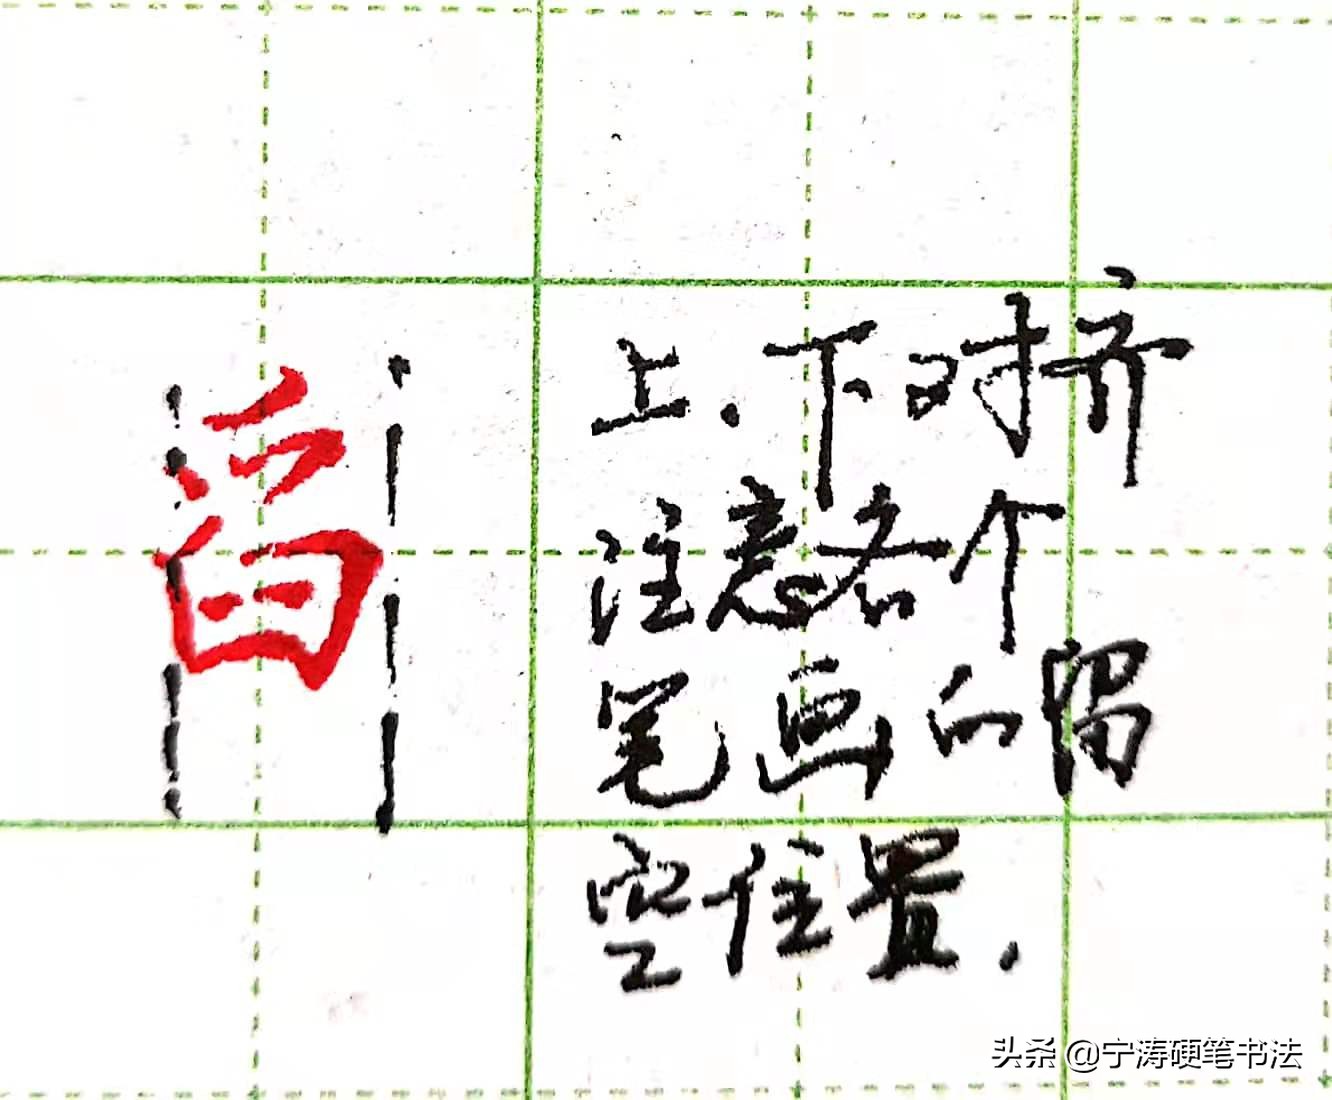 上、下对齐
注意各个
笔画的留
空位置.
头条 @宁涛硬笔书法